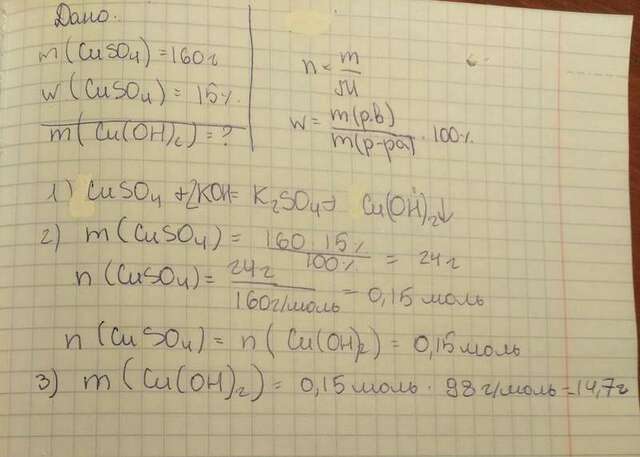 Дано.
m(CuSO4) = 160г
w(CuSO4) = 15%.
m(Cu(OH)2) = ?
n = m/M
w = m(р.в)/m(р-ра) · 100%
1) CuSO4 + 2KOH = K2SO4 + Cu(OH)2↓
2) m(CuSO4) = 160 · 15%/100% = 24г
n(CuSO4) = 24г/160г/моль = 0,15 моль
n(CuSO4) = n(Cu(OH)2) = 0,15 моль
3) m(Cu(OH)2) = 0,15 моль · 98 г/моль = 14,7г